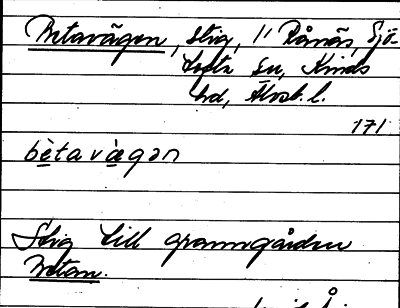 Betavägen, stig, i Rånäs, Sjö-
tofta sn, Kinds
hd, Älvsb. l.
171
bètavä̀gən
Stig till granngården
Betan.